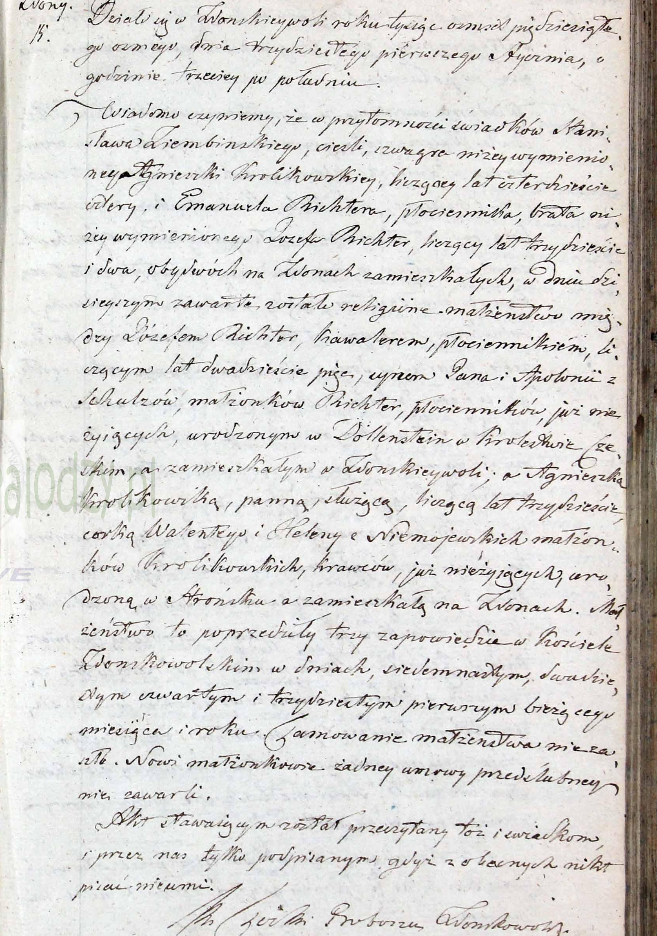 Zdony.
15.
Działo się w Zdonskieywoli roku tysiąc ośmset pięćdziesiąte-
go osmego, dnia trzydziestego pierwszego Stycznia, o
godzinie trzeciey po południu.
Wiadomo czyniemy, że w przytomności świadków Stani-
sława Ziembinskiego, cieśli, szwagra niżey wymienio-
ney Agnieszki Krolikowskiey, liczący lat czterdzieście
cztery, i Emanuela Richtera, płociennika, brata ni-
żey wymienionego Jozefa Richter, liczący lat trzydzieście
i dwa, obydwóch na Zdonach zamieszkałych, w dniu dzi-
sieyszym zawarte zostało religiine małżenstwo mię-
dzy Józefem Richter, kawalerem, płociennikiem, li-
czącym lat dwadzieście pięć, synem Jana i Apolonii z
Schulzów, małżonków Richter, płocienników, już nie
żyiących, urodzonym w Döllenstein w Krolestwie Cze-
skim, a zamieszkałym w Zdonskieywoli; a Agnieszką
Krolikowską, panną, służącą, liczącą lat trzydzieście,
corką Walentego i Heleny z Niemojewskich małżon-
ków Krolikowskich, krawców, już nieżyjących, uro-
dzoną w Strońsku a zamieszkałą na Zdonach. Mał-
żeństwo to poprzedziły trzy zapowiedzie w Kościele
Zdonskowolskim w dniach, siedemnastym, dwudzie-
stym czwartym i trzydziestym pierwszym bieżącego
miesiąca i roku. Tamowanie małżenstwa nie za-
szło. Nowi małżonkowie żadney umowy przedślubney
nie zawarli.
Akt stawaiącym został przeczytany toż i swiadkom,
i przez nas tylko podpisanym, gdyż z obecnych nikt
pisać nieumi.
Proboszcz Zdonskowol.
ajodz.pl